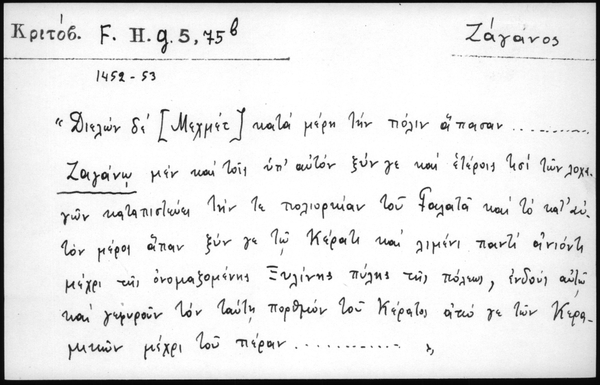 Κριτόβ. F. H. g. 5, 75b Ζάγάνος
1452 - 53
“ Διελών δέ [Μεχμέτ] κατά μέρη τήν πόλιν ἅπασαν ..........
Ζαγάνῳ μέν καί τοῖς ὑπ' αὐτόν ξύν γε καί ἑτέροις τισί τῶν λοχα-
γῶν καταπιστεύει τήν τε πολιορκίαν τοῦ Γαλατᾶ καί τό κατ' αὐ-
τόν μέρος ἅπαν ξύν γε τῷ Κέρατι καί λιμένι παντί ἀνιόντι
μέχρι τῆς ὀνομαζομένης Ξυλίνης πύλης τῆς πόλεως, ἐνδούς αὐτῷ
καί γεφυροῦν τόν ταύτῃ πορθμόν τοῦ Κέρατος ἀπό γε τῶν Κερα-
μικῶν μέχρι τοῦ πέραν ............. ”